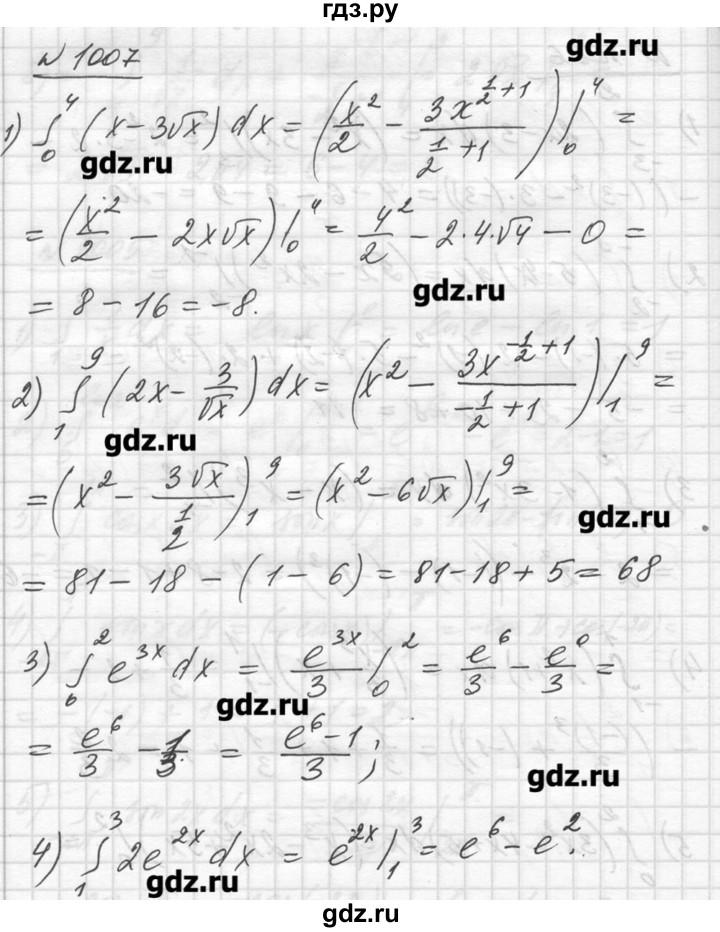 гдз.ру
№ 1007
gdz.ru
1) ∫₀⁴ (x - 3√x) dx = (x²/2 - 3x^(1/2+1)/(1/2+1)) |₀⁴ =
gdz.ru
= (x²/2 - 2x√x) |₀⁴ = 4²/2 - 2·4·√4 - 0 =
gdz.ru
= 8 - 16 = -8.
2) ∫₁⁹ (2x - 3/√x) dx = (x² - 3x^(-1/2+1)/(-1/2+1)) |₁⁹ =
gdz.ru
= (x² - 3√x/(1/2))₁⁹ = (x² - 6√x) |₁⁹ =
gdz.ru
= 81 - 18 - (1 - 6) = 81 - 18 + 5 = 68
3) ∫₀² e^(3x) dx = e^(3x)/3 |₀² = e⁶/3 - e⁰/3 =
gdz.ru
= e⁶/3 - 1/3 = (e⁶ - 1)/3;
gdz.ru
4) ∫₁³ 2e^(2x) dx = e^(2x) |₁³ = e⁶ - e².
gdz.ru
gdz.ru